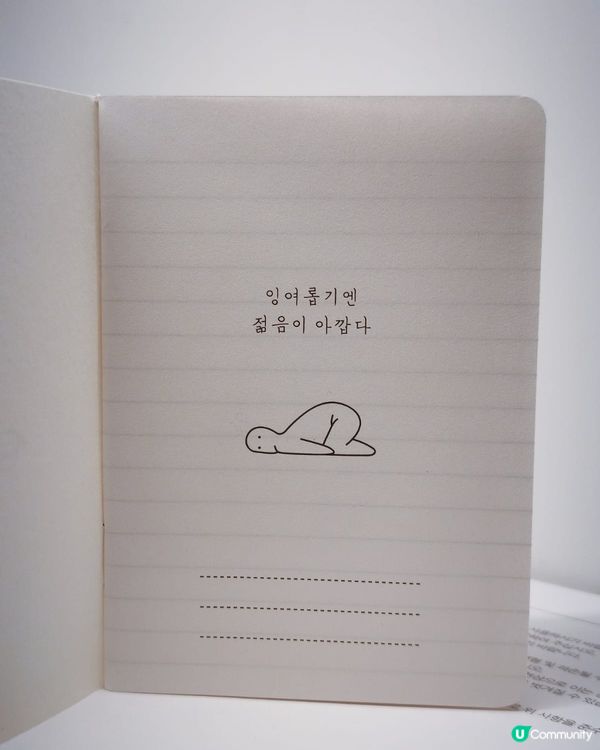 잉여롭기엔
젊음이 아깝다
U Community